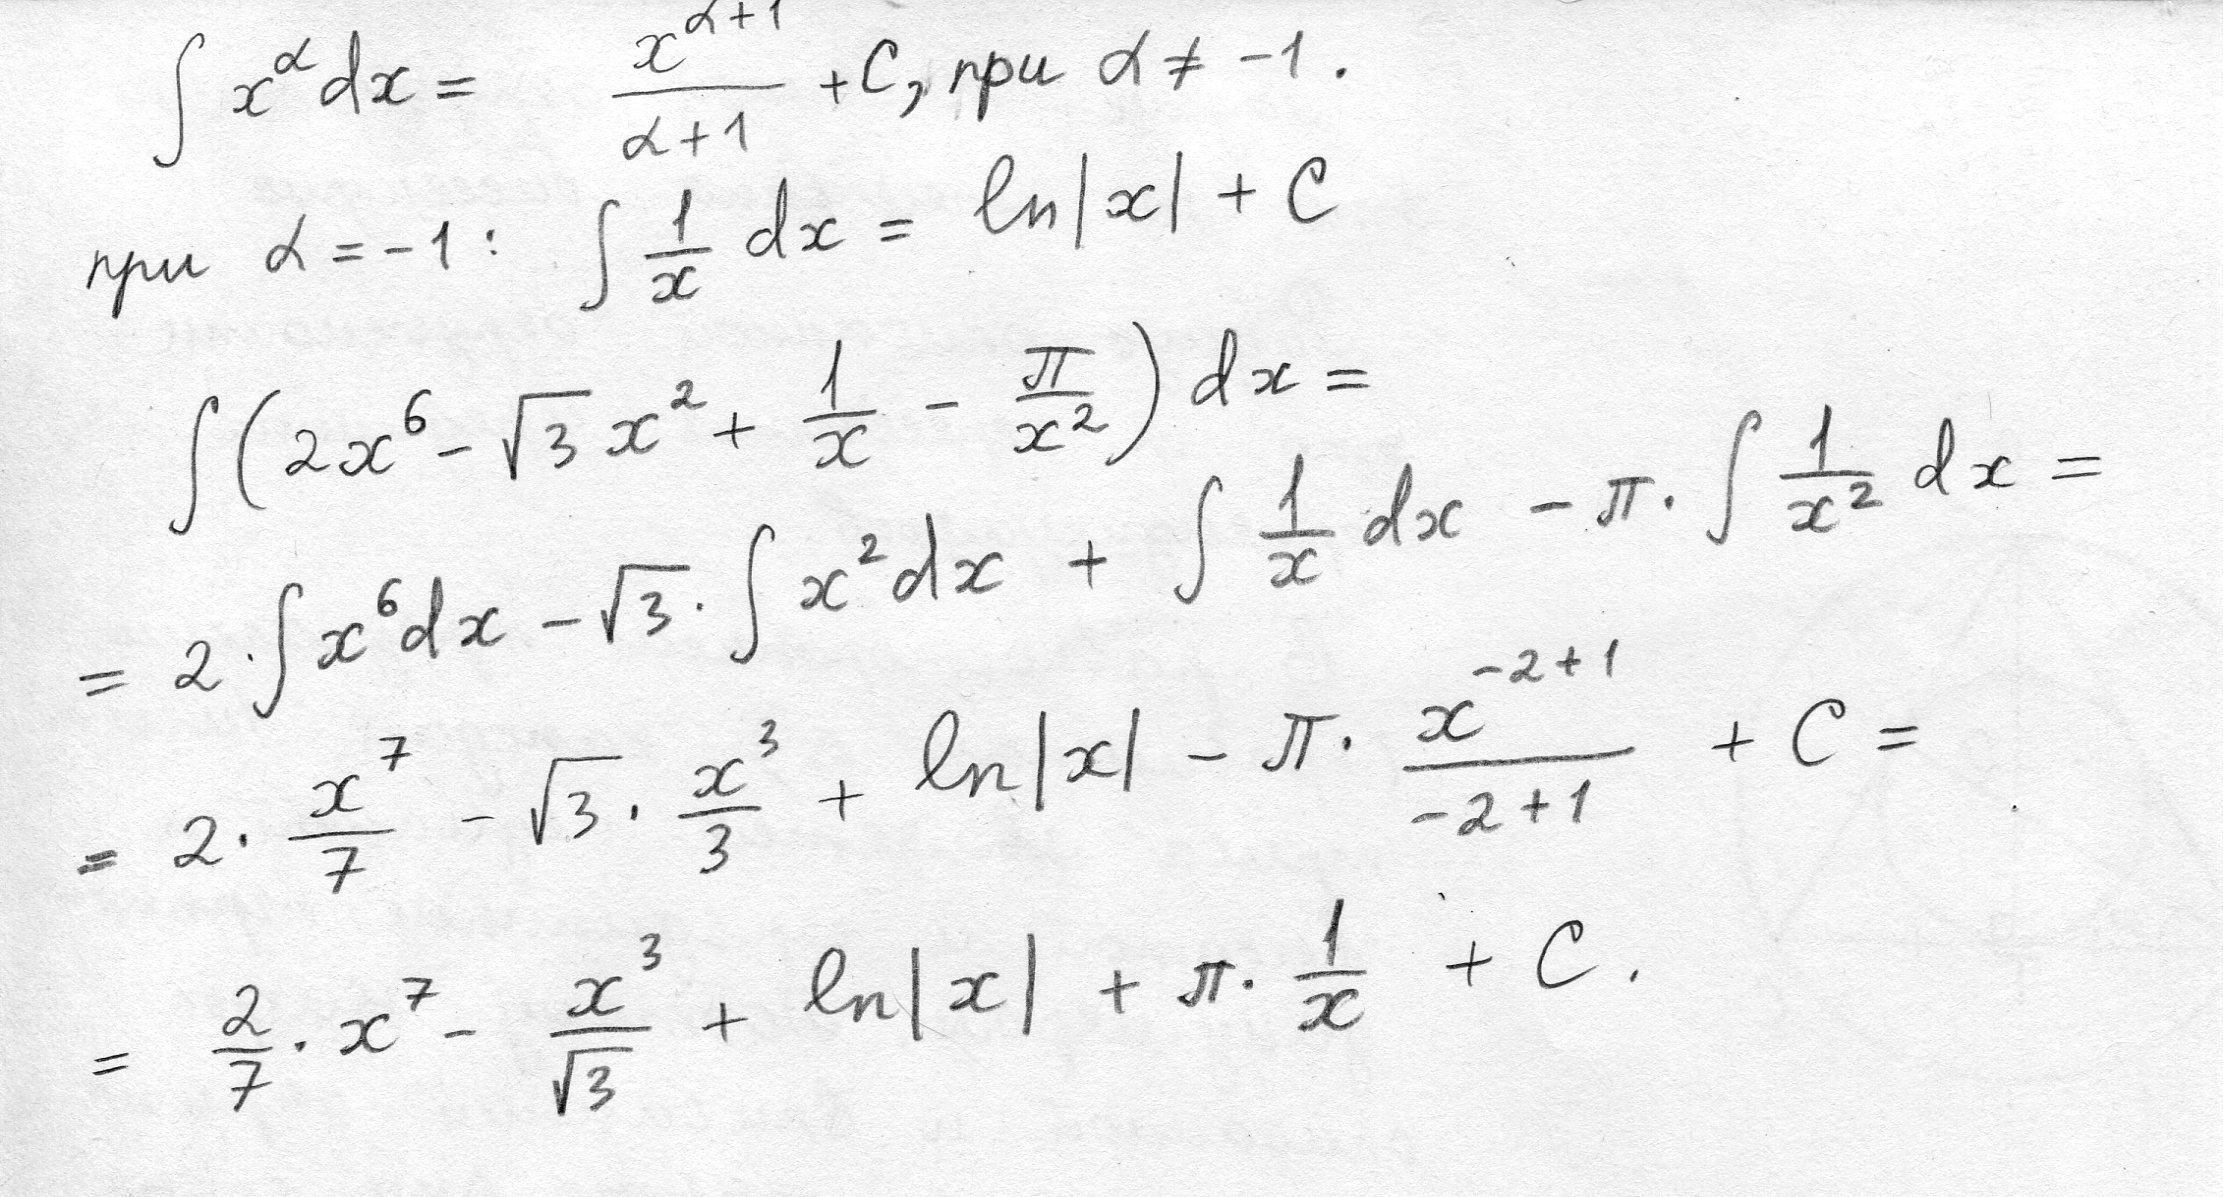 ∫ x^α dx = x^(α+1)/(α+1) + C, при α ≠ -1.
при α = -1: ∫ 1/x dx = ln|x| + C
∫ (2x^6 - √3 x^2 + 1/x - π/x^2) dx =
= 2 · ∫ x^6 dx - √3 · ∫ x^2 dx + ∫ 1/x dx - π · ∫ 1/x^2 dx =
= 2 · x^7/7 - √3 · x^3/3 + ln|x| - π · x^(-2+1)/(-2+1) + C =
= 2/7 · x^7 - x^3/√3 + ln|x| + π · 1/x + C.